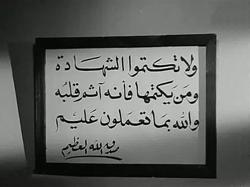 ولا تكتموا الشهادة
ومن يكتمها فأنه آثم قلبه
والله بما تعملون عليم
صدق الله العظيم